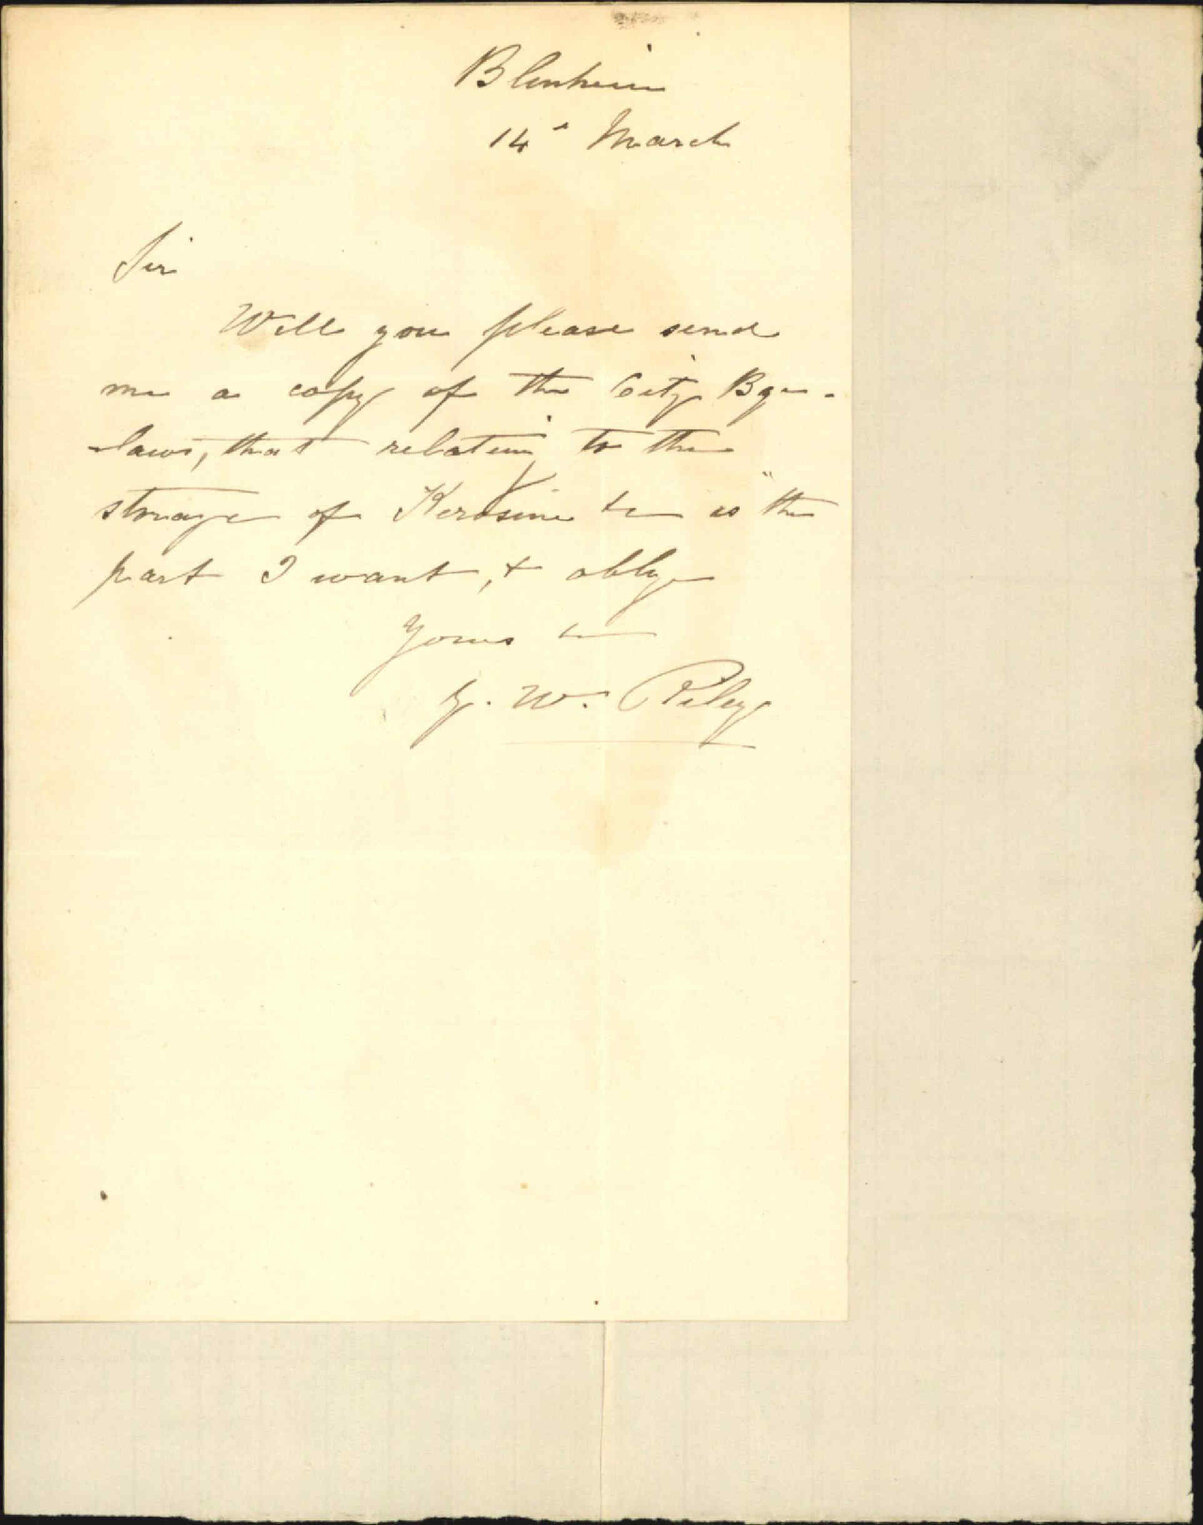 Blenheim
14 March
Sir
Will you please send
me a copy of the City Bye-
laws, that relating to the
storage of Kerosine &c is the
part I want, & oblige
Yours &c
G. W. Riley